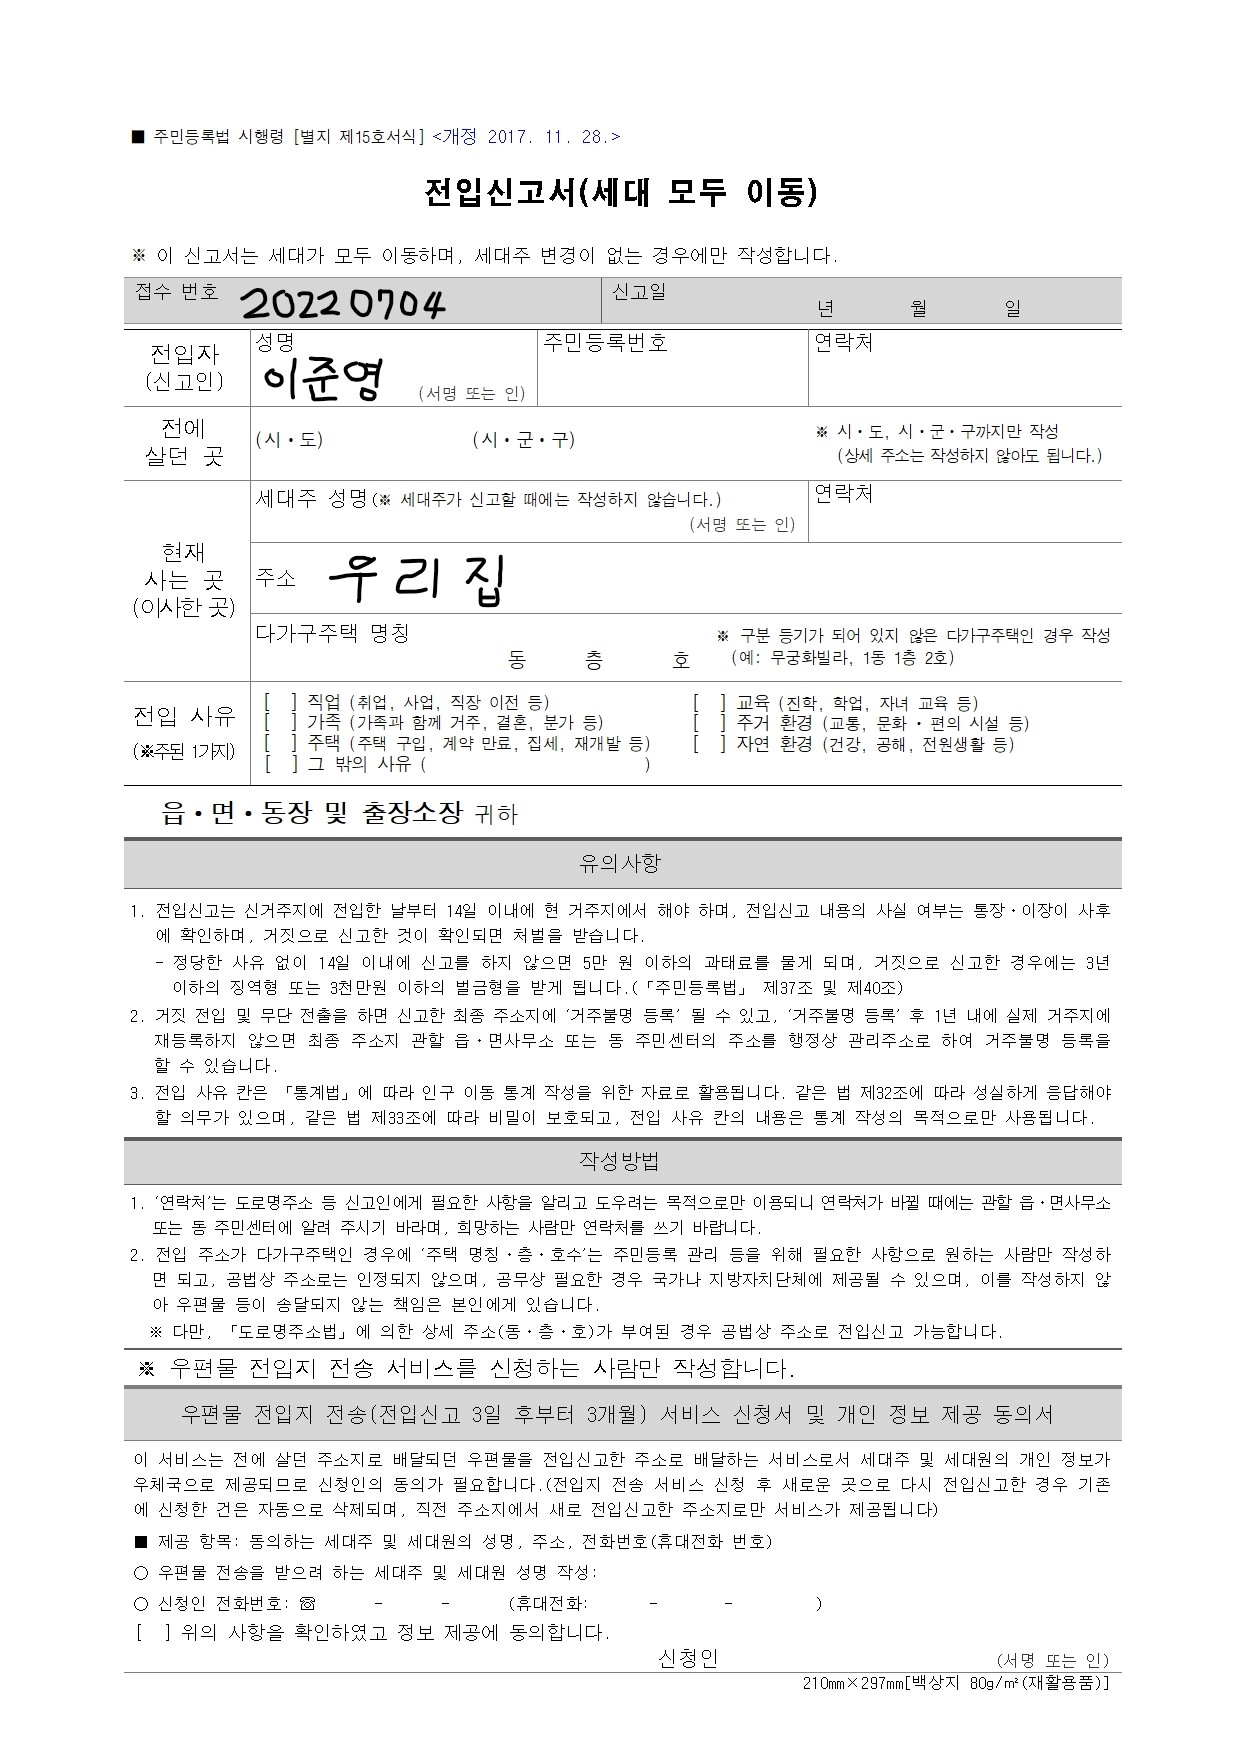 ■ 주민등록법 시행령 [별지 제15호서식] <개정 2017. 11. 28.>
전입신고서(세대 모두 이동)
※ 이 신고서는 세대가 모두 이동하며, 세대주 변경이 없는 경우에만 작성합니다.
접수 번호 20220704 신고일 년 월 일
전입자 (신고인)
성명 이준영 (서명 또는 인)
주민등록번호
연락처
전에 살던 곳
(시・도) (시・군・구)
※ 시・도, 시・군・구까지만 작성
(상세 주소는 작성하지 않아도 됩니다.)
현재 사는 곳 (이사한 곳)
세대주 성명(※ 세대주가 신고할 때에는 작성하지 않습니다.)
(서명 또는 인)
연락처
주소 우리집
다가구주택 명칭
동 층 호
※ 구분 등기가 되어 있지 않은 다가구주택인 경우 작성
(예: 무궁화빌라, 1동 1층 2호)
전입 사유
(※주된 1가지)
[ ] 직업 (취업, 사업, 직장 이전 등) [ ] 교육 (진학, 학업, 자녀 교육 등)
[ ] 가족 (가족과 함께 거주, 결혼, 분가 등) [ ] 주거 환경 (교통, 문화・편의 시설 등)
[ ] 주택 (주택 구입, 계약 만료, 집세, 재개발 등) [ ] 자연 환경 (건강, 공해, 전원생활 등)
[ ] 그 밖의 사유 ( )
읍・면・동장 및 출장소장 귀하
유의사항
1. 전입신고는 신거주지에 전입한 날부터 14일 이내에 현 거주지에서 해야 하며, 전입신고 내용의 사실 여부는 통장・이장이 사후
에 확인하며, 거짓으로 신고한 것이 확인되면 처벌을 받습니다.
- 정당한 사유 없이 14일 이내에 신고를 하지 않으면 5만 원 이하의 과태료를 물게 되며, 거짓으로 신고한 경우에는 3년
이하의 징역형 또는 3천만원 이하의 벌금형을 받게 됩니다.(「주민등록법」 제37조 및 제40조)
2. 거짓 전입 및 무단 전출을 하면 신고한 최종 주소지에 ‘거주불명 등록’ 될 수 있고, ‘거주불명 등록’ 후 1년 내에 실제 거주지에
재등록하지 않으면 최종 주소지 관할 읍・면사무소 또는 동 주민센터의 주소를 행정상 관리주소로 하여 거주불명 등록을
할 수 있습니다.
3. 전입 사유 칸은 「통계법」에 따라 인구 이동 통계 작성을 위한 자료로 활용됩니다. 같은 법 제32조에 따라 성실하게 응답해야
할 의무가 있으며, 같은 법 제33조에 따라 비밀이 보호되고, 전입 사유 칸의 내용은 통계 작성의 목적으로만 사용됩니다.
작성방법
1. ‘연락처’는 도로명주소 등 신고인에게 필요한 사항을 알리고 도우려는 목적으로만 이용되니 연락처가 바뀔 때에는 관할 읍・면사무소
또는 동 주민센터에 알려 주시기 바라며, 희망하는 사람만 연락처를 쓰기 바랍니다.
2. 전입 주소가 다가구주택인 경우에 ‘주택 명칭・층・호수’는 주민등록 관리 등을 위해 필요한 사항으로 원하는 사람만 작성하
면 되고, 공법상 주소로는 인정되지 않으며, 공무상 필요한 경우 국가나 지방자치단체에 제공될 수 있으며, 이를 작성하지 않
아 우편물 등이 송달되지 않는 책임은 본인에게 있습니다.
※ 다만, 「도로명주소법」에 의한 상세 주소(동・층・호)가 부여된 경우 공법상 주소로 전입신고 가능합니다.
※ 우편물 전입지 전송 서비스를 신청하는 사람만 작성합니다.
우편물 전입지 전송(전입신고 3일 후부터 3개월) 서비스 신청서 및 개인 정보 제공 동의서
이 서비스는 전에 살던 주소지로 배달되던 우편물을 전입신고한 주소로 배달하는 서비스로서 세대주 및 세대원의 개인 정보가
우체국으로 제공되므로 신청인의 동의가 필요합니다.(전입지 전송 서비스 신청 후 새로운 곳으로 다시 전입신고한 경우 기존
에 신청한 건은 자동으로 삭제되며, 직전 주소지에서 새로 전입신고한 주소지로만 서비스가 제공됩니다)
■ 제공 항목: 동의하는 세대주 및 세대원의 성명, 주소, 전화번호(휴대전화 번호)
○ 우편물 전송을 받으려 하는 세대주 및 세대원 성명 작성:
○ 신청인 전화번호: ☏ - - (휴대전화: - - )
[ ] 위의 사항을 확인하였고 정보 제공에 동의합니다.
신청인 (서명 또는 인)
210㎜×297㎜[백상지 80g/㎡(재활용품)]